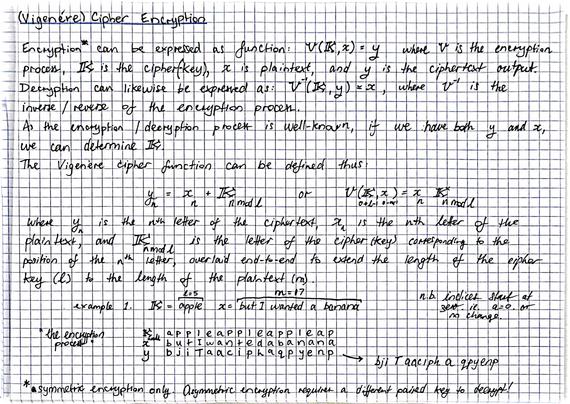 (Vigenére) Cipher Encryption
Encryption* can be expressed as function: V(K,x) = y where V is the encryption
process, K is the cipher(key), x is plaintext, and y is the ciphertext output.
Decryption can likewise be expressed as: V⁻¹(K,y) = x, where V⁻¹ is the
inverse / reverse of the encryption process.
As the encryption / decryption process is well-known, if we have both y and x,
we can determine K.
The Vigenère cipher function can be defined thus:
yₙ = xₙ + K n mod l or V(K,x) = xₙ K n mod l
where yₙ is the nth letter of the ciphertext, xₙ is the nth letter of the
plaintext, and K n mod l is the letter of the cipher(key) corresponding to the
position of the nth letter, overlaid end-to-end to extend the length of the cipher
key (l) to the length of the plaintext (m).
l=5 m=17
example 1. K = apple x = but I wanted a banana
n.b. indices start at
zero i.e. a=0. or
no change.
*the encryption
process
K appleappleappleap
x butIwantedabanana
y bjiTaaciphaqpyenp → bji Taaciph a qpyenp
*asymmetric encryption only. Asymmetric encryption requires a different paired key to decrypt!